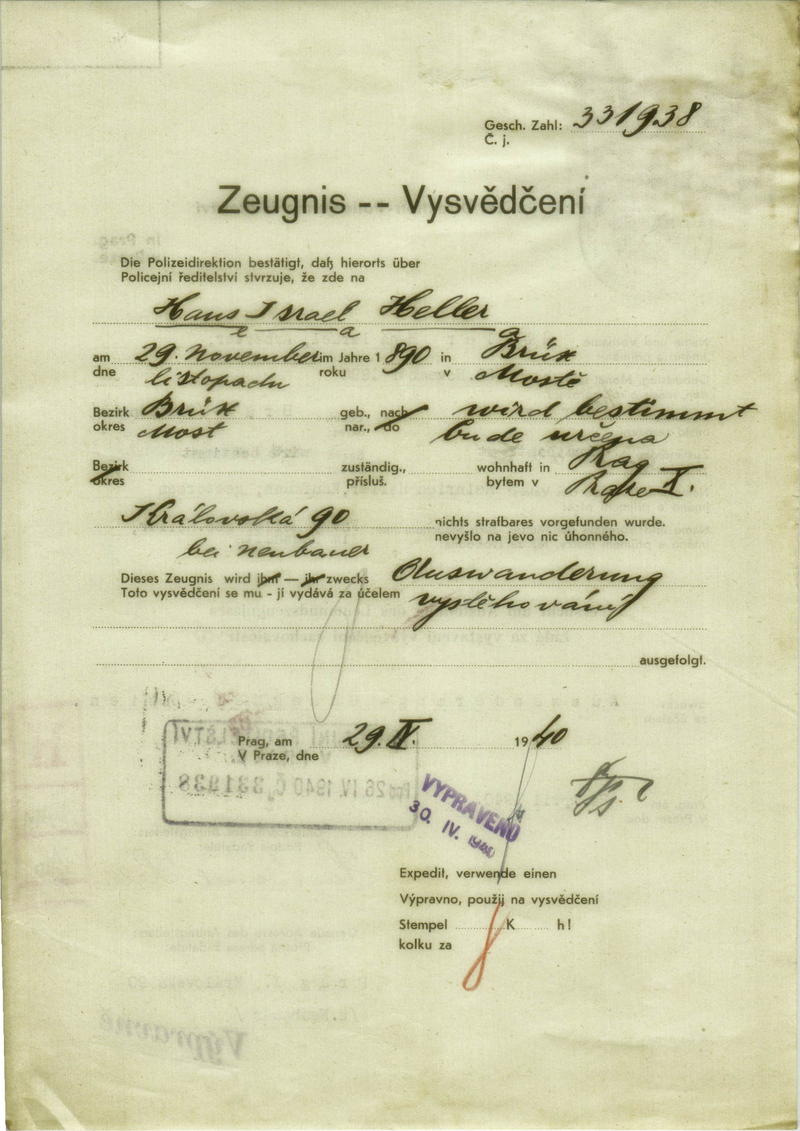 Gesch. Zahl: 331938
Č. j.
Zeugnis -- Vysvědčení
Die Polizeidirektion bestätigt, daß hierorts über
Policejní ředitelství stvrzuje, že zde na
Hans Israel Heller
e a a
am 29. November im Jahre 1890 in Brüx
dne listopadu roku v Mostě
Bezirk Brüx geb., nach wird bestimmt
okres Most nar., do bude určena
Bezirk zuständig., wohnhaft in Prag
okres přísluš. bytem v Praze X.
Královská 90 nichts strafbares vorgefunden wurde.
nevyšlo na jevo nic úhonného.
bei Neubauer
Dieses Zeugnis wird ihm — ihr zwecks Auswanderung
Toto vysvědčení se mu - jí vydává za účelem vystěhování
ausgefolgt.
Prag, am 29. IV. 1940
V Praze, dne
26 IV 1940 č. 331938
VYPRAVENO
30. IV. 1940
Expedit, verwende einen
Výpravno, použij na vysvědčení
Stempel K h!
kolku za
Výpravně